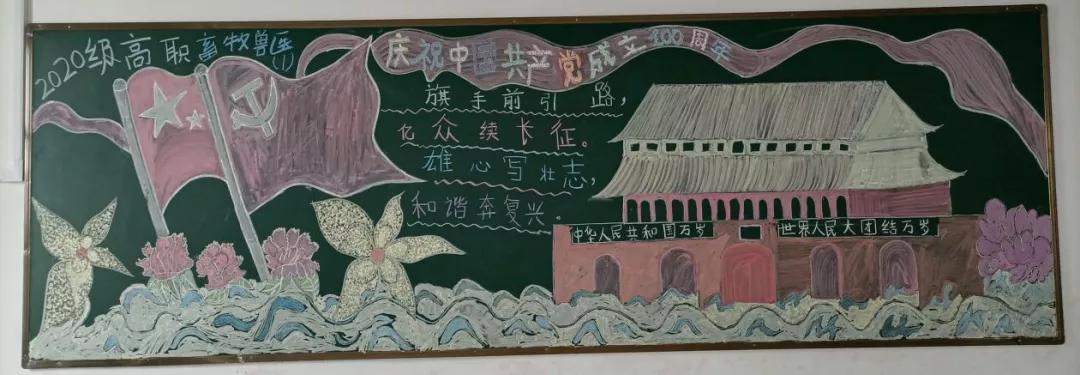 2020级高职畜牧兽医(1)
庆祝中国共产党成立100周年
旗手前引路，
亿众续长征。
雄心写壮志，
和谐奔复兴。
中华人民共和国万岁
世界人民大团结万岁